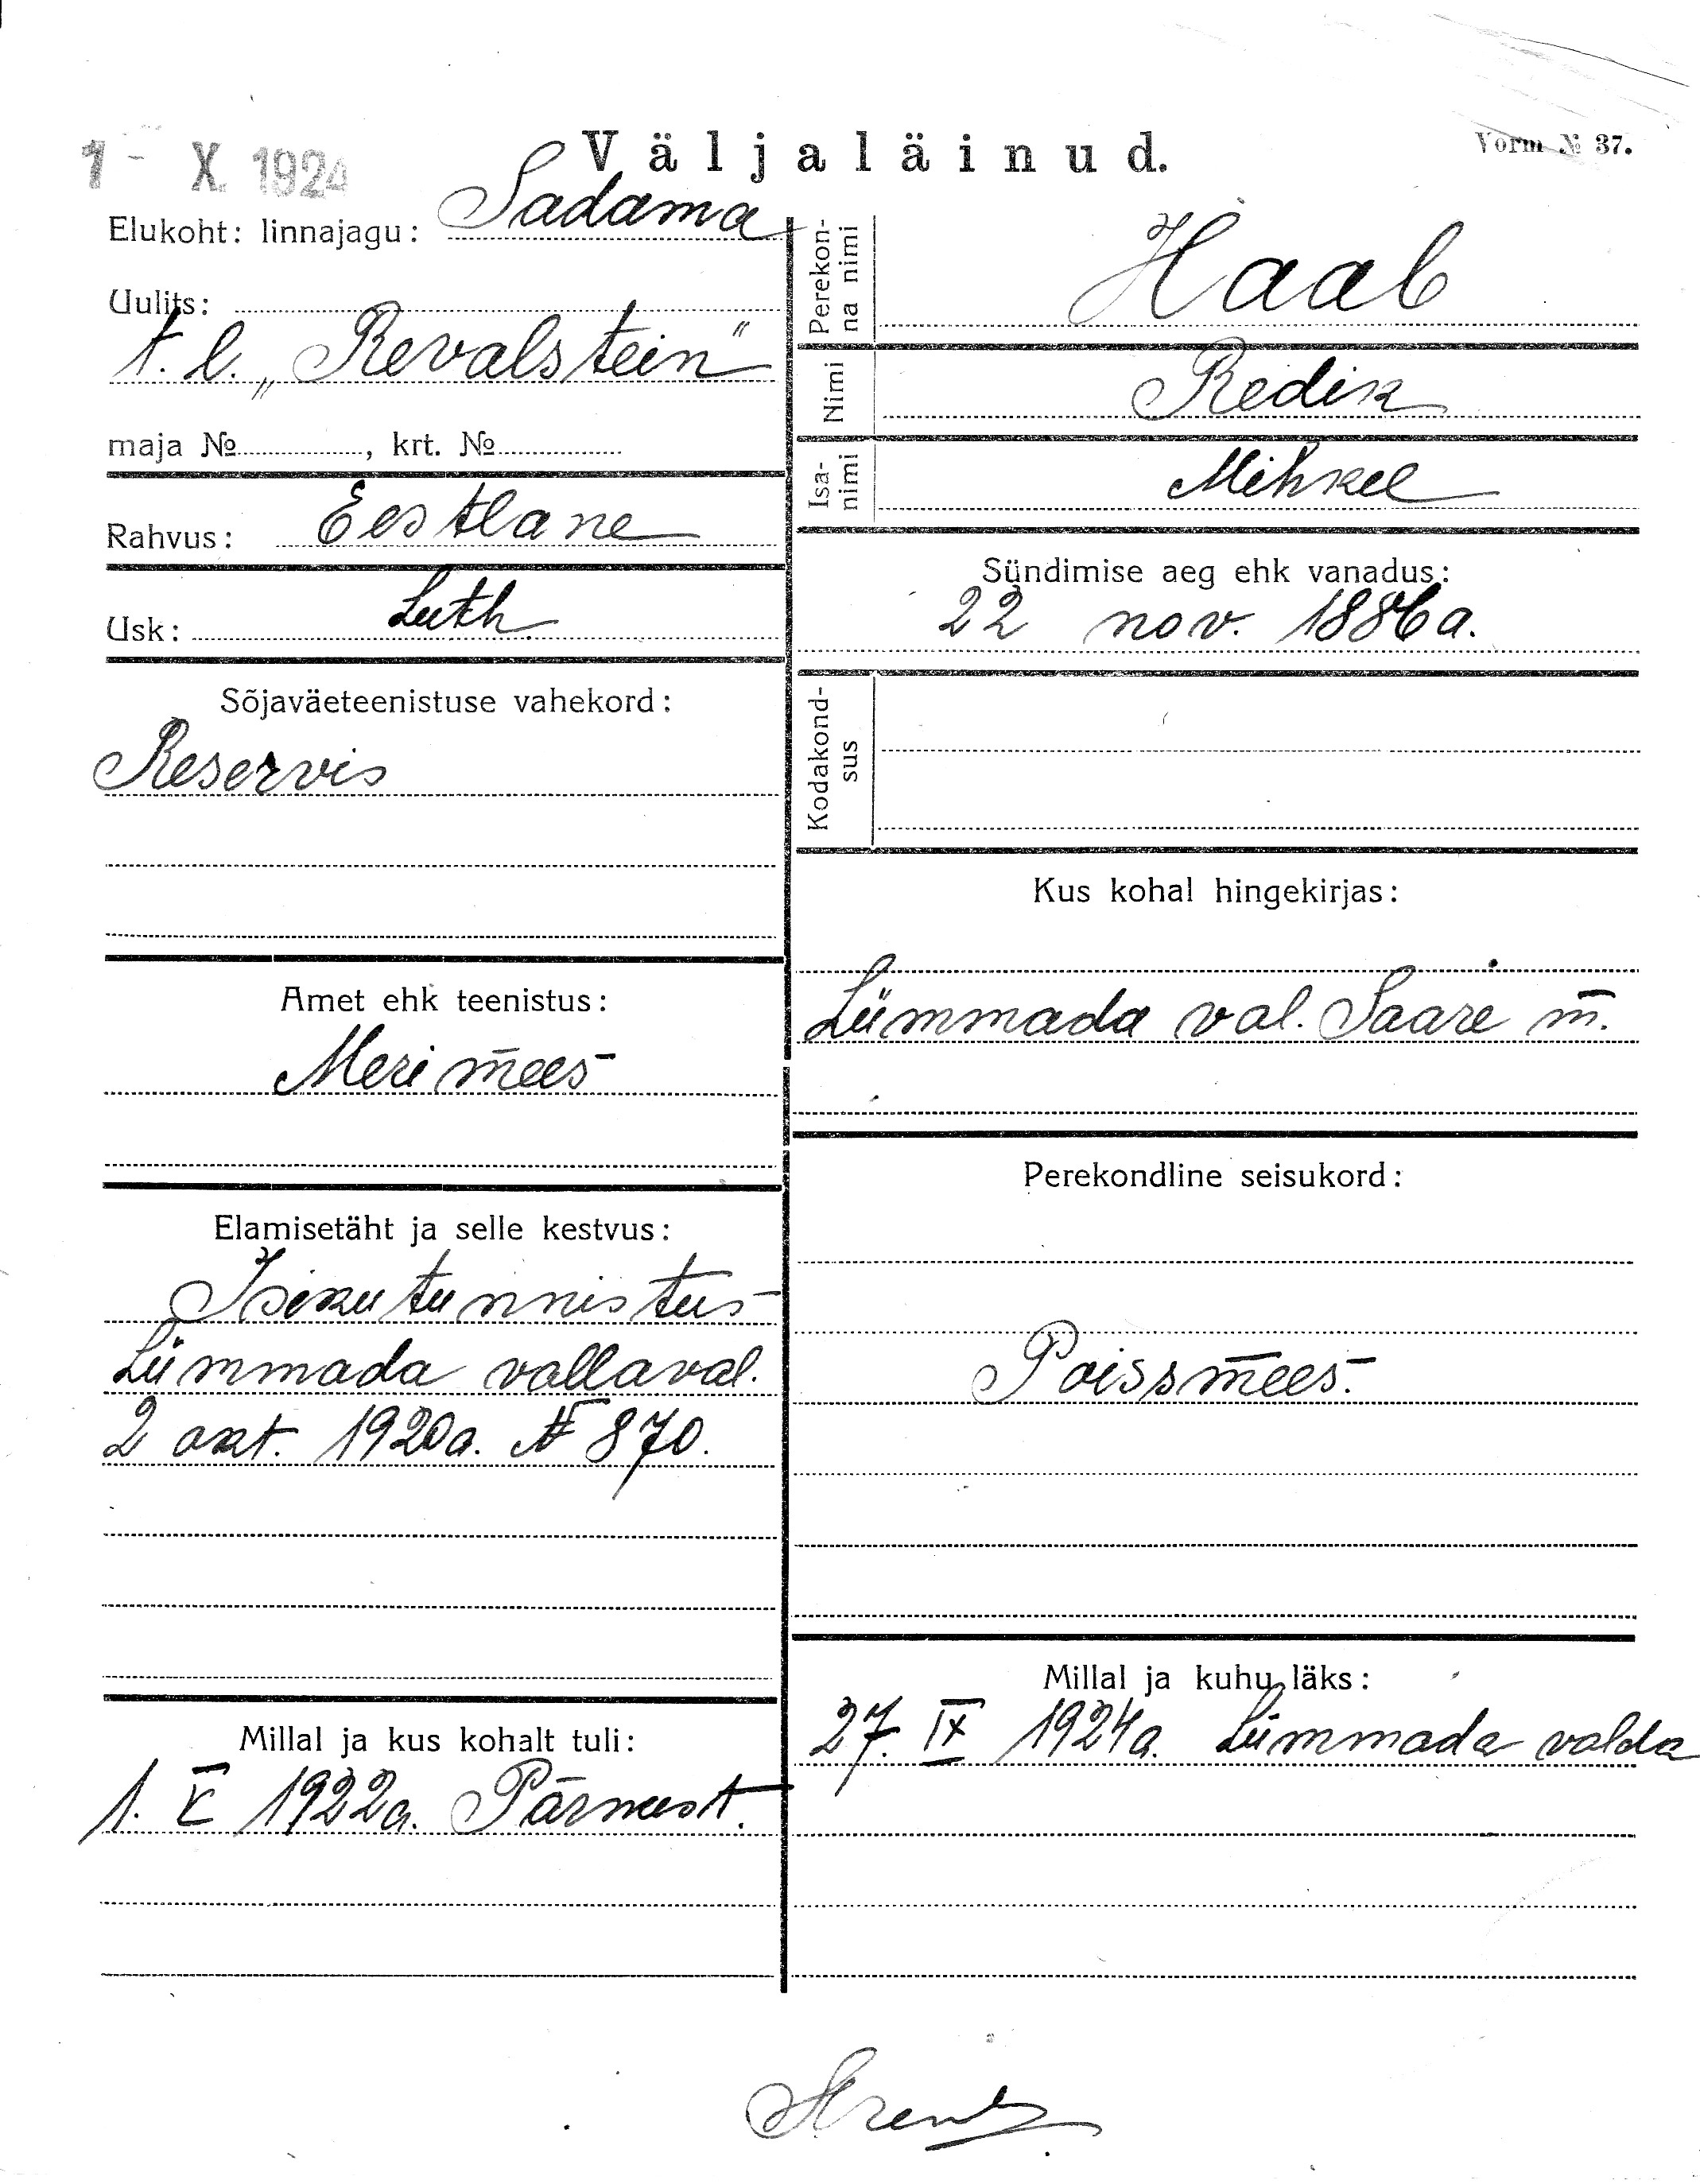 1 - X. 1924
Väljaläinud.
Vorm № 37.
Elukoht: linnajagu: Sadama
Uulits:
t. l. „Revalstein"
maja № , krt. №
Rahvus: Eestlane
Usk: Luth.
Sõjaväeteenistuse vahekord:
Reservis
Amet ehk teenistus:
Meri mees
Elamisetäht ja selle kestvus:
Isiku tunnistus
Lümmada vallaval.
2 okt. 1920a. № 870.
Millal ja kus kohalt tuli:
1. V 1922a. Pärnust.
Perekon-
na nimi
Haab
Nimi
Redik
Isa-
nimi
Mihkel
Sündimise aeg ehk vanadus:
22 nov. 1886 a.
Kodakond-
sus
Kus kohal hingekirjas:
Lümmada val. Saare m.
Perekondline seisukord:
Poissmees.
Millal ja kuhu läks:
27. IX 1924a. Lümmada valda